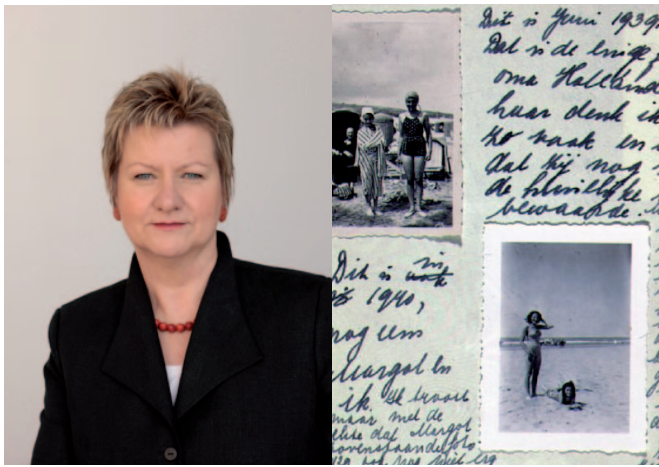 Dit is Juni 1939
Dat is de enige
oma Holland
haar denk ik
zo vaak en
dat zij nog
de huiselijke
bewaarde.
Dit is in
1940,
nog eens
Margot en
ik. Ik troost
maar met de
dat Margot
bovenstaande foto